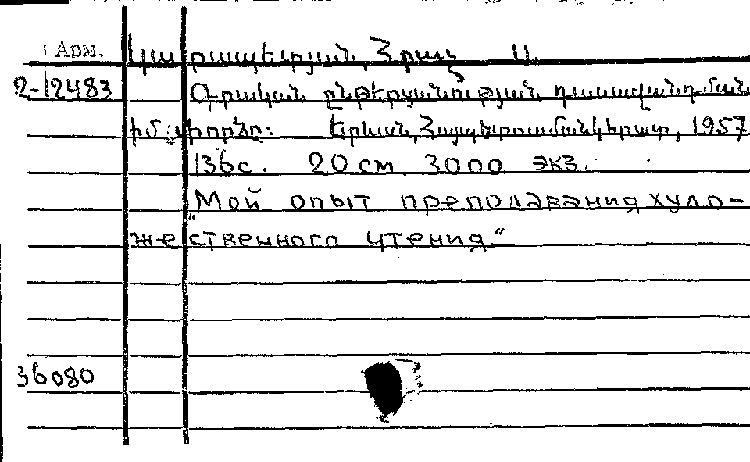 Арм. Կարապետյան, Հրաչ Ա.
2-12483 Գրական ընթերցանության դասավանդման
իմ փորձը։ Երևան, Հայպետուսմանկհրատ, 1957
136с. 20 см. 3000 экз.
"Мой опыт преподавания худо-
жественного чтения."
36080